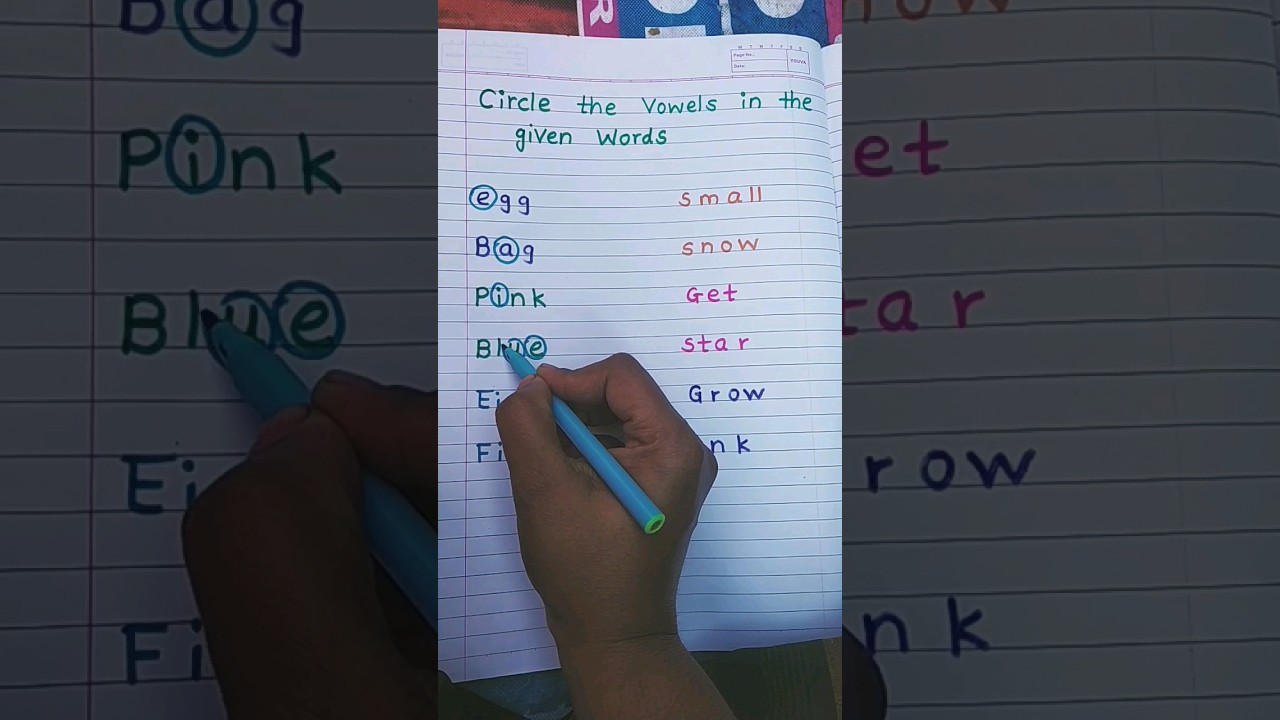 Circle the Vowels in the
given Words
egg small
Bag snow
Pink Get
Blue star
Grow